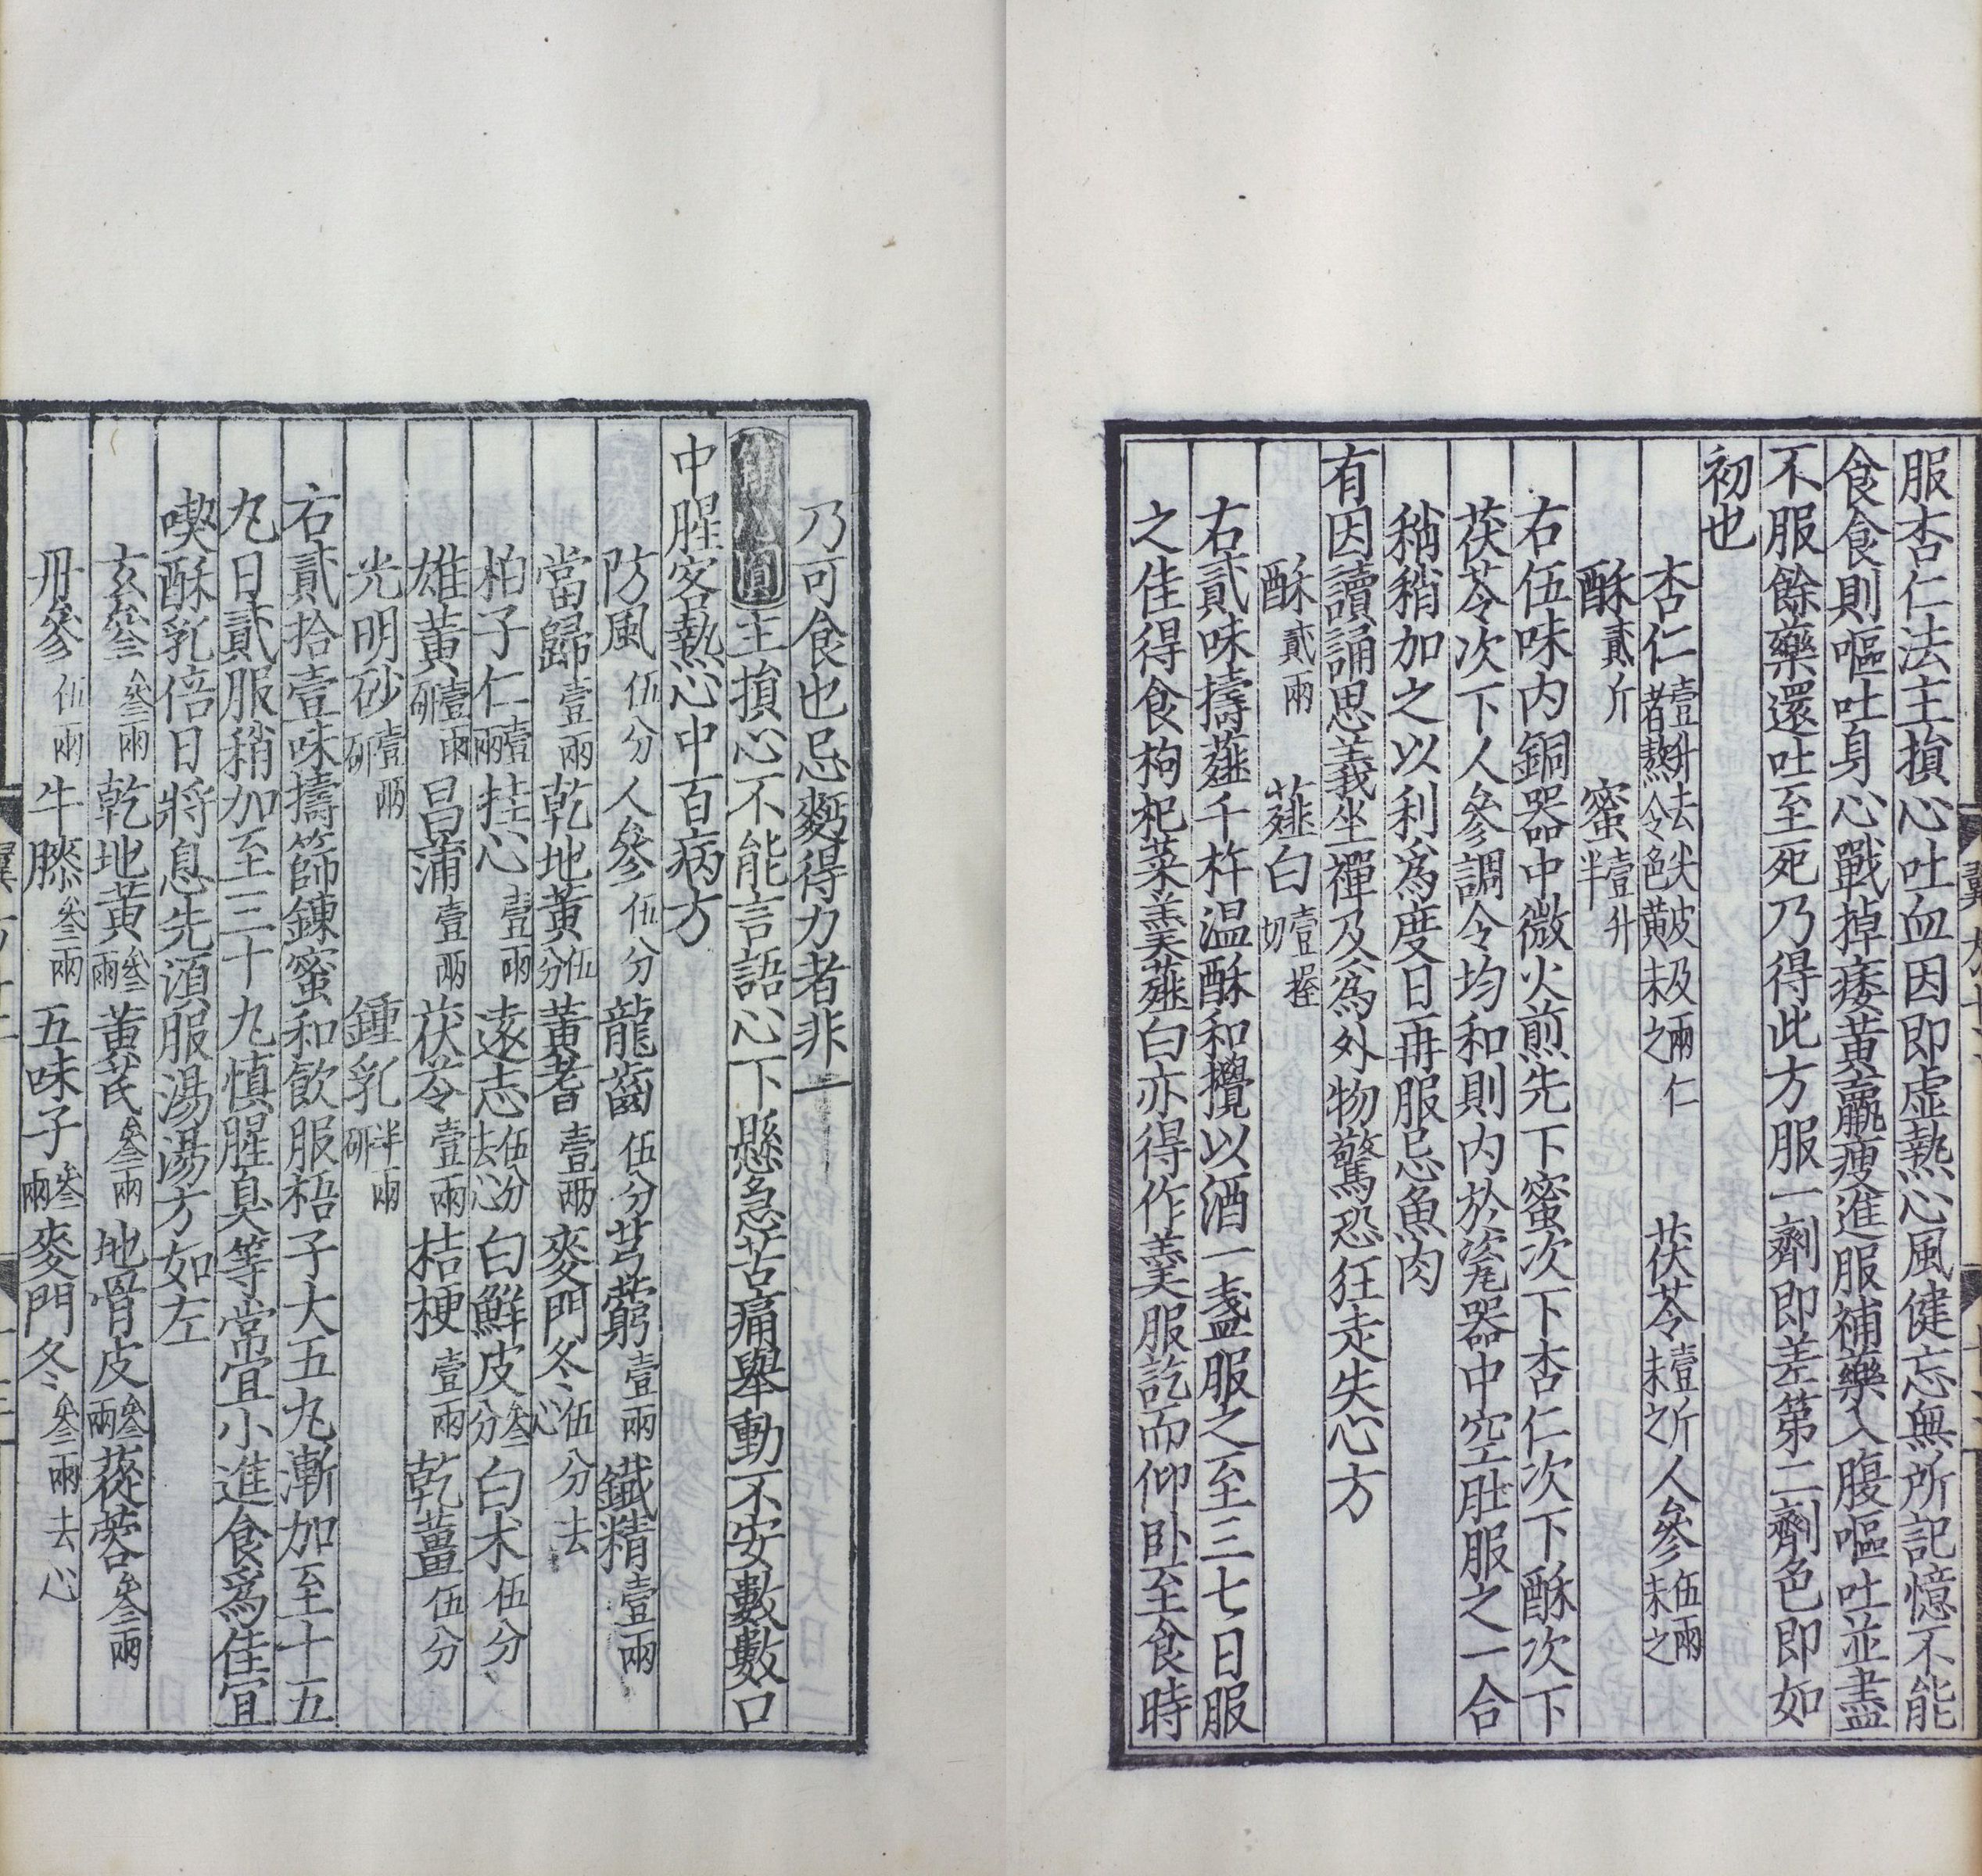 服杏仁法主損心吐血因即虛熱心風健忘無所記憶不能
食食則嘔吐身心戰掉痿黃羸瘦進服補藥入腹嘔吐並盡
不服餘藥還吐至死乃得此方服一劑即差第二劑色即如
初也
杏仁壹升去尖皮及兩仁者熬令色黃末之 茯苓壹斤末之 人參伍兩末之
酥貳斤 蜜壹升半
右伍味内銅器中微火煎先下蜜次下杏仁次下酥次下
茯苓次下人參調令均和則内於瓷器中空肚服之一合
稍稍加之以利爲度日再服忌魚肉
有因讀誦思義坐禪及爲外物驚恐狂走失心方
酥貳兩 薤白壹握切
右貳味擣薤千杵溫酥和攪以酒一盞服之至三七日服
之佳得食枸杞菜羹薤白亦得作羹服訖而仰卧至食時
乃可食也忌麪得力者非一
主損心不能言語心下懸急苦痛舉動不安數數口
中腥客熱心中百病方
防風伍分 人參伍分 龍齒伍分 芎藭壹兩 鐵精壹兩
當歸壹兩 乾地黃伍分 黃耆壹兩 麥門冬伍分去心
柏子仁壹兩 桂心壹兩 遠志伍分去心 白鮮皮叁分 白术伍分
雄黃壹兩研 昌蒲壹兩 茯苓壹兩 桔梗壹兩 乾薑伍分
光明砂壹兩研 鍾乳半兩研
右貳拾壹味擣篩鍊蜜和飲服梧子大五丸漸加至十五
丸日貳服稍加至三十丸慎腥臭等常宜小進食爲佳宜
喫酥乳倍日將息先湏服湯湯方如左
玄參叁兩 乾地黃叁兩 黃芪叁兩 地骨皮叁兩 蓯蓉叁兩
丹參伍兩 牛膝叁兩 五味子叁兩 麥門冬叁兩去心